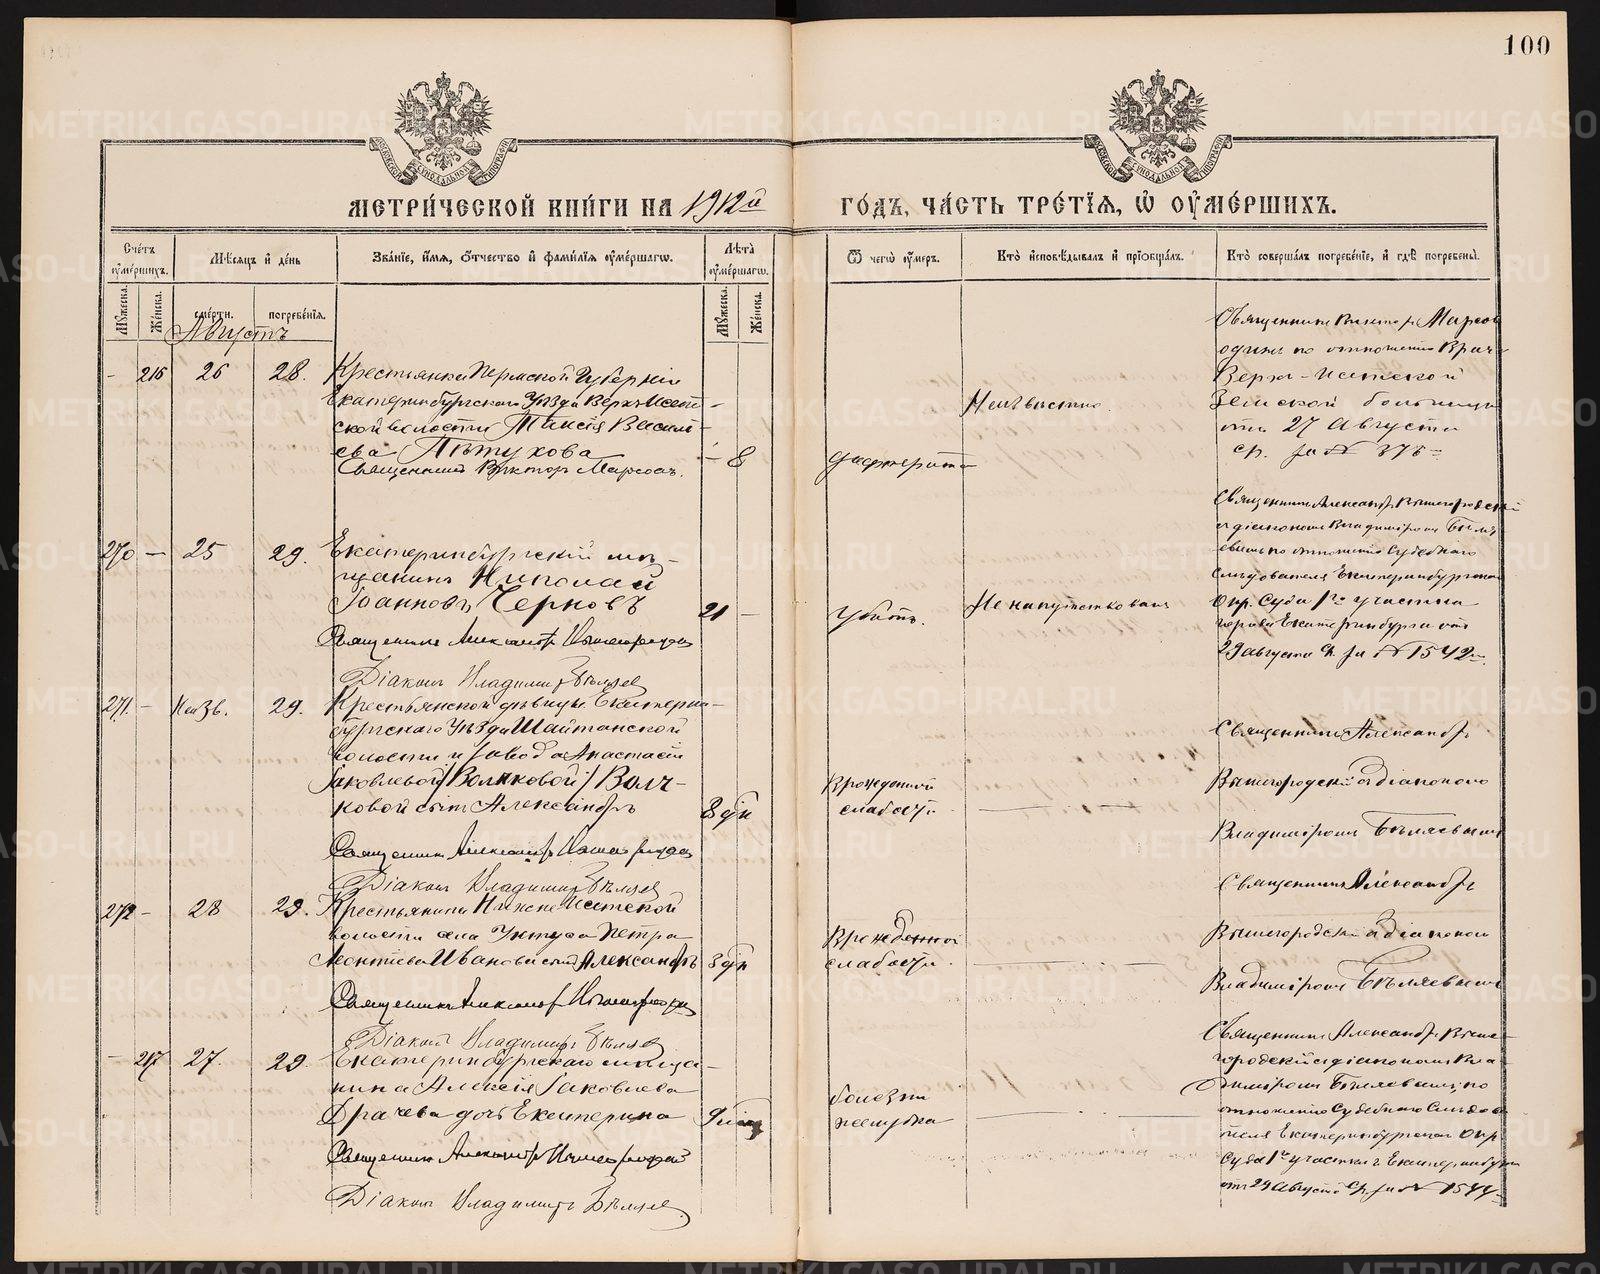 100
МЕТРИ́ЧЕСКОЙ КНИ́ГИ НА 1912й ГО́ДЪ, ЧА́СТЬ ТРЕ́ТІЯ, Ѡ ОУМЕ́РШИХЪ.
Счётъ оумершихъ.
Мѣсяцъ и день
Званіе, имя, отчество и фамилія оумершагѡ.
Лѣта оумершагѡ.
Ѿ чегѡ оумеръ.
Кто исповѣдывалъ и пріобщалъ.
Кто совершалъ погребеніе, и гдѣ погребены.
Мужеска.
Женска.
смерти.
погребенія.
Мужеска.
Женска.
Августъ
- 216 26 28. Крестьянка Пермской Губерніи
Екатеринбургскаго Уѣзда Верхъ-Исет-
ской волости Таисія Василь-
ева Пѣтухова
- 8
Священникъ Викторъ Марсовъ.
дифтерита
Неизвѣстно.
Священникъ Викторъ Марсов
одинъ по отношенію Врач
Верхъ-Исетской
Земской больницы
отъ 27 Августа
за № 375
270 - 25 29. Екатеринбургскій мѣ-
щанинъ Николай
Іоанновъ Черновъ
21 -
Священникъ Александръ Вышегородскій
Діаконъ Владиміръ Бѣляев
Убитъ.
Не напутствованъ
Священникъ Александръ Вышегородскій
и діакономъ Владиміромъ Бѣля
евымъ по отношенію Судебнаго
слѣдователя Екатеринбургскаго
Окр. Суда 1го участка
города Екатеринбурга отъ
29 августа за № 1542
271 - Неизв. 29. Крестьянской дѣвицы Екатерин-
бургскаго Уѣзда Шайтанской
волости и завода Анастасіи
Іаковлевой /Волковой/ Волч-
ковой сынъ Александръ
8 дн
Священникъ Александръ Вышегородскій
Діаконъ Владиміръ Бѣляев
Врожденной
слабости
Священникъ Александръ
Вышегородскій съ діакономъ
Владиміромъ Бѣляевымъ
272 - 28 29. Крестьянина Нижне-Исетской
волости села Уктуса Петра
Леонтіева Ивановъ сынъ Александръ
3 дн
Священникъ Александръ Вышегородскій
Діаконъ Владиміръ Бѣляев
Врожденной
слабости.
Священникъ Александръ
Вышегородскій съ діакономъ
Владиміромъ Бѣляевымъ
- 217 27. 29. Екатеринбургскаго мѣща-
нина Алексія Іаковлева
Драчева дочь Екатерина
9 мѣс
Священникъ Александръ Вышегородскій
Діаконъ Владиміръ Бѣляев
болезни
желудка
Священникъ Александръ Выше-
городскій съ діакономъ Вла
диміромъ Бѣляевымъ, по
отношенію Судебнаго Слѣдова
теля Екатеринбургскаго Окр
Суда 1го участка г. Екатеринбурга
отъ 29 Августа за № 1544